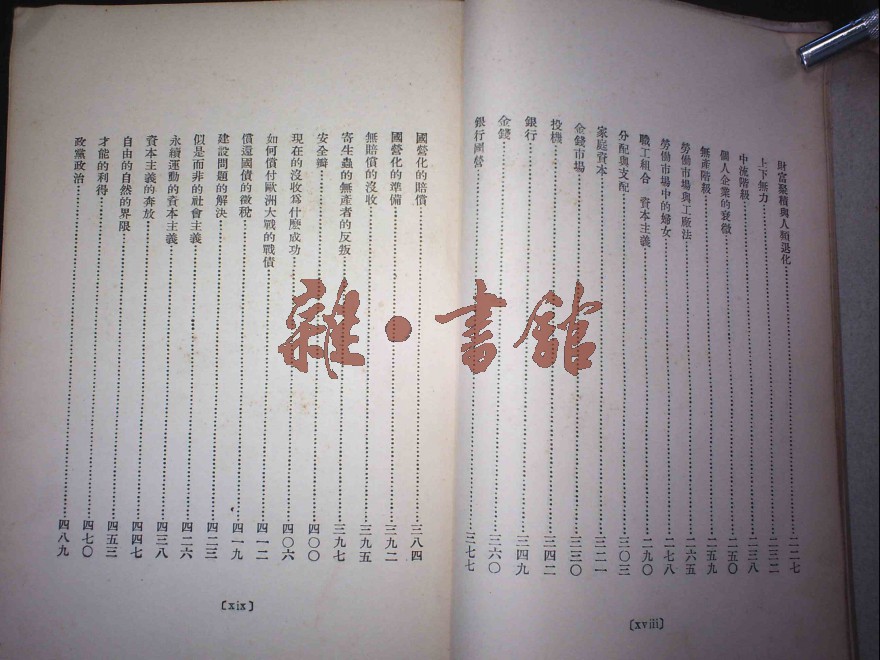 財富聚積與人類退化……二二七
上下無力……二三二
中流階級……二三八
個人企業的衰微……二五〇
無產階級……二五九
勞働市場與工廠法……二六五
勞働市場中的婦女……二七八
職工組合 資本主義……二九〇
分配與支配……三〇三
家庭資本……三二一
金錢市場……三三〇
投機……三四二
銀行……三四九
金錢……三六〇
銀行國營……三七七
〔xviii〕
國營化的賠償……三八四
國營化的準備……三九二
無賠償的沒收……三九五
寄生蟲的無產者的反叛……三九七
安全瓣……四〇〇
現在的沒收爲什麼成功……四〇六
如何償付歐洲大戰的戰債……四一二
償還國債的徵稅……四一九
建設問題的解決……四二三
似是而非的社會主義……四二六
永續運動的資本主義……四三八
資本主義的奔放……四四七
自由的自然的界限……四五三
才能的利得……四七〇
政黨政治……四八九
〔xix〕
雜·書館